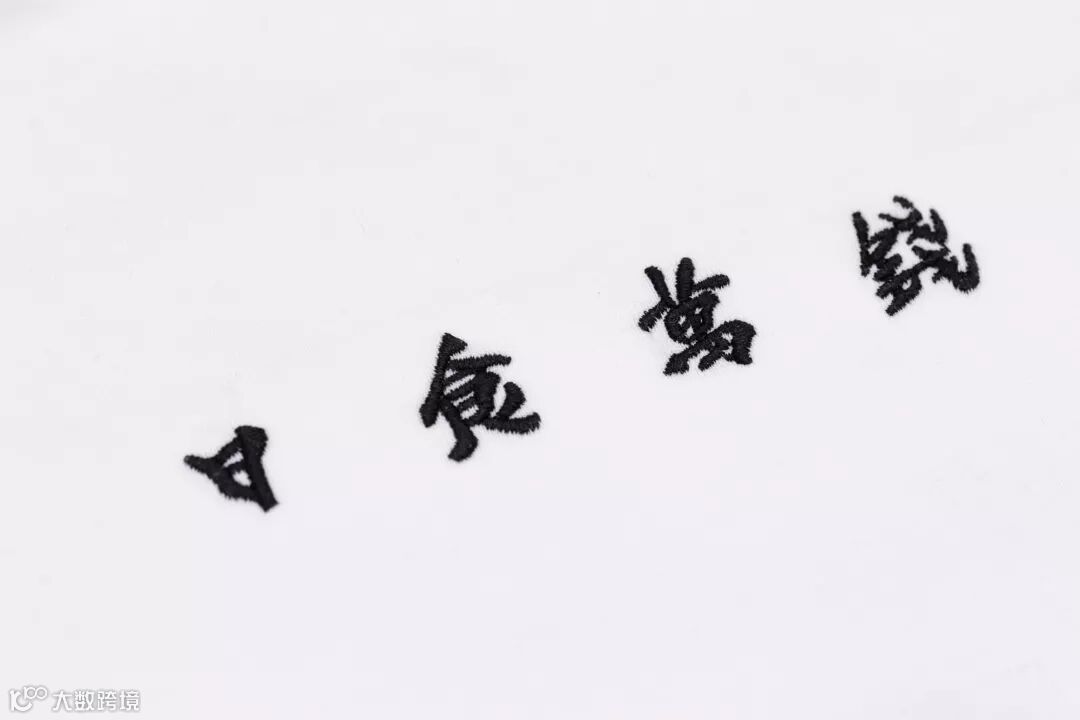 日食萬錢
大数跨境